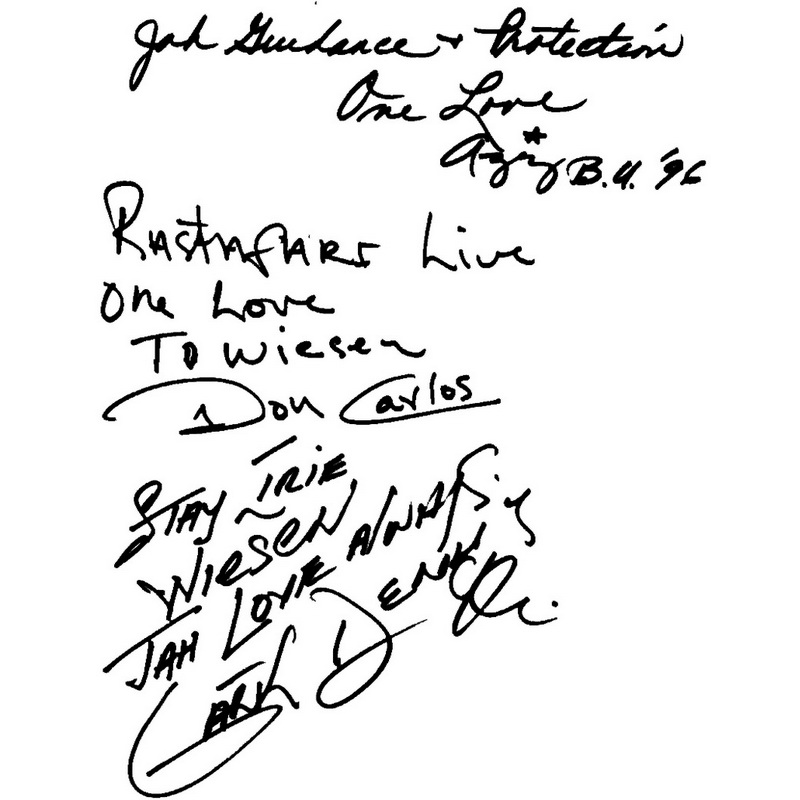 Jah Guidance + Protection
One Love
Aziz B.U. '96
RASTAFARI Live
One Love
To Wiesen
Don Carlos
STAY IRIE
WIESEN
JAH LOVE ALWAYS